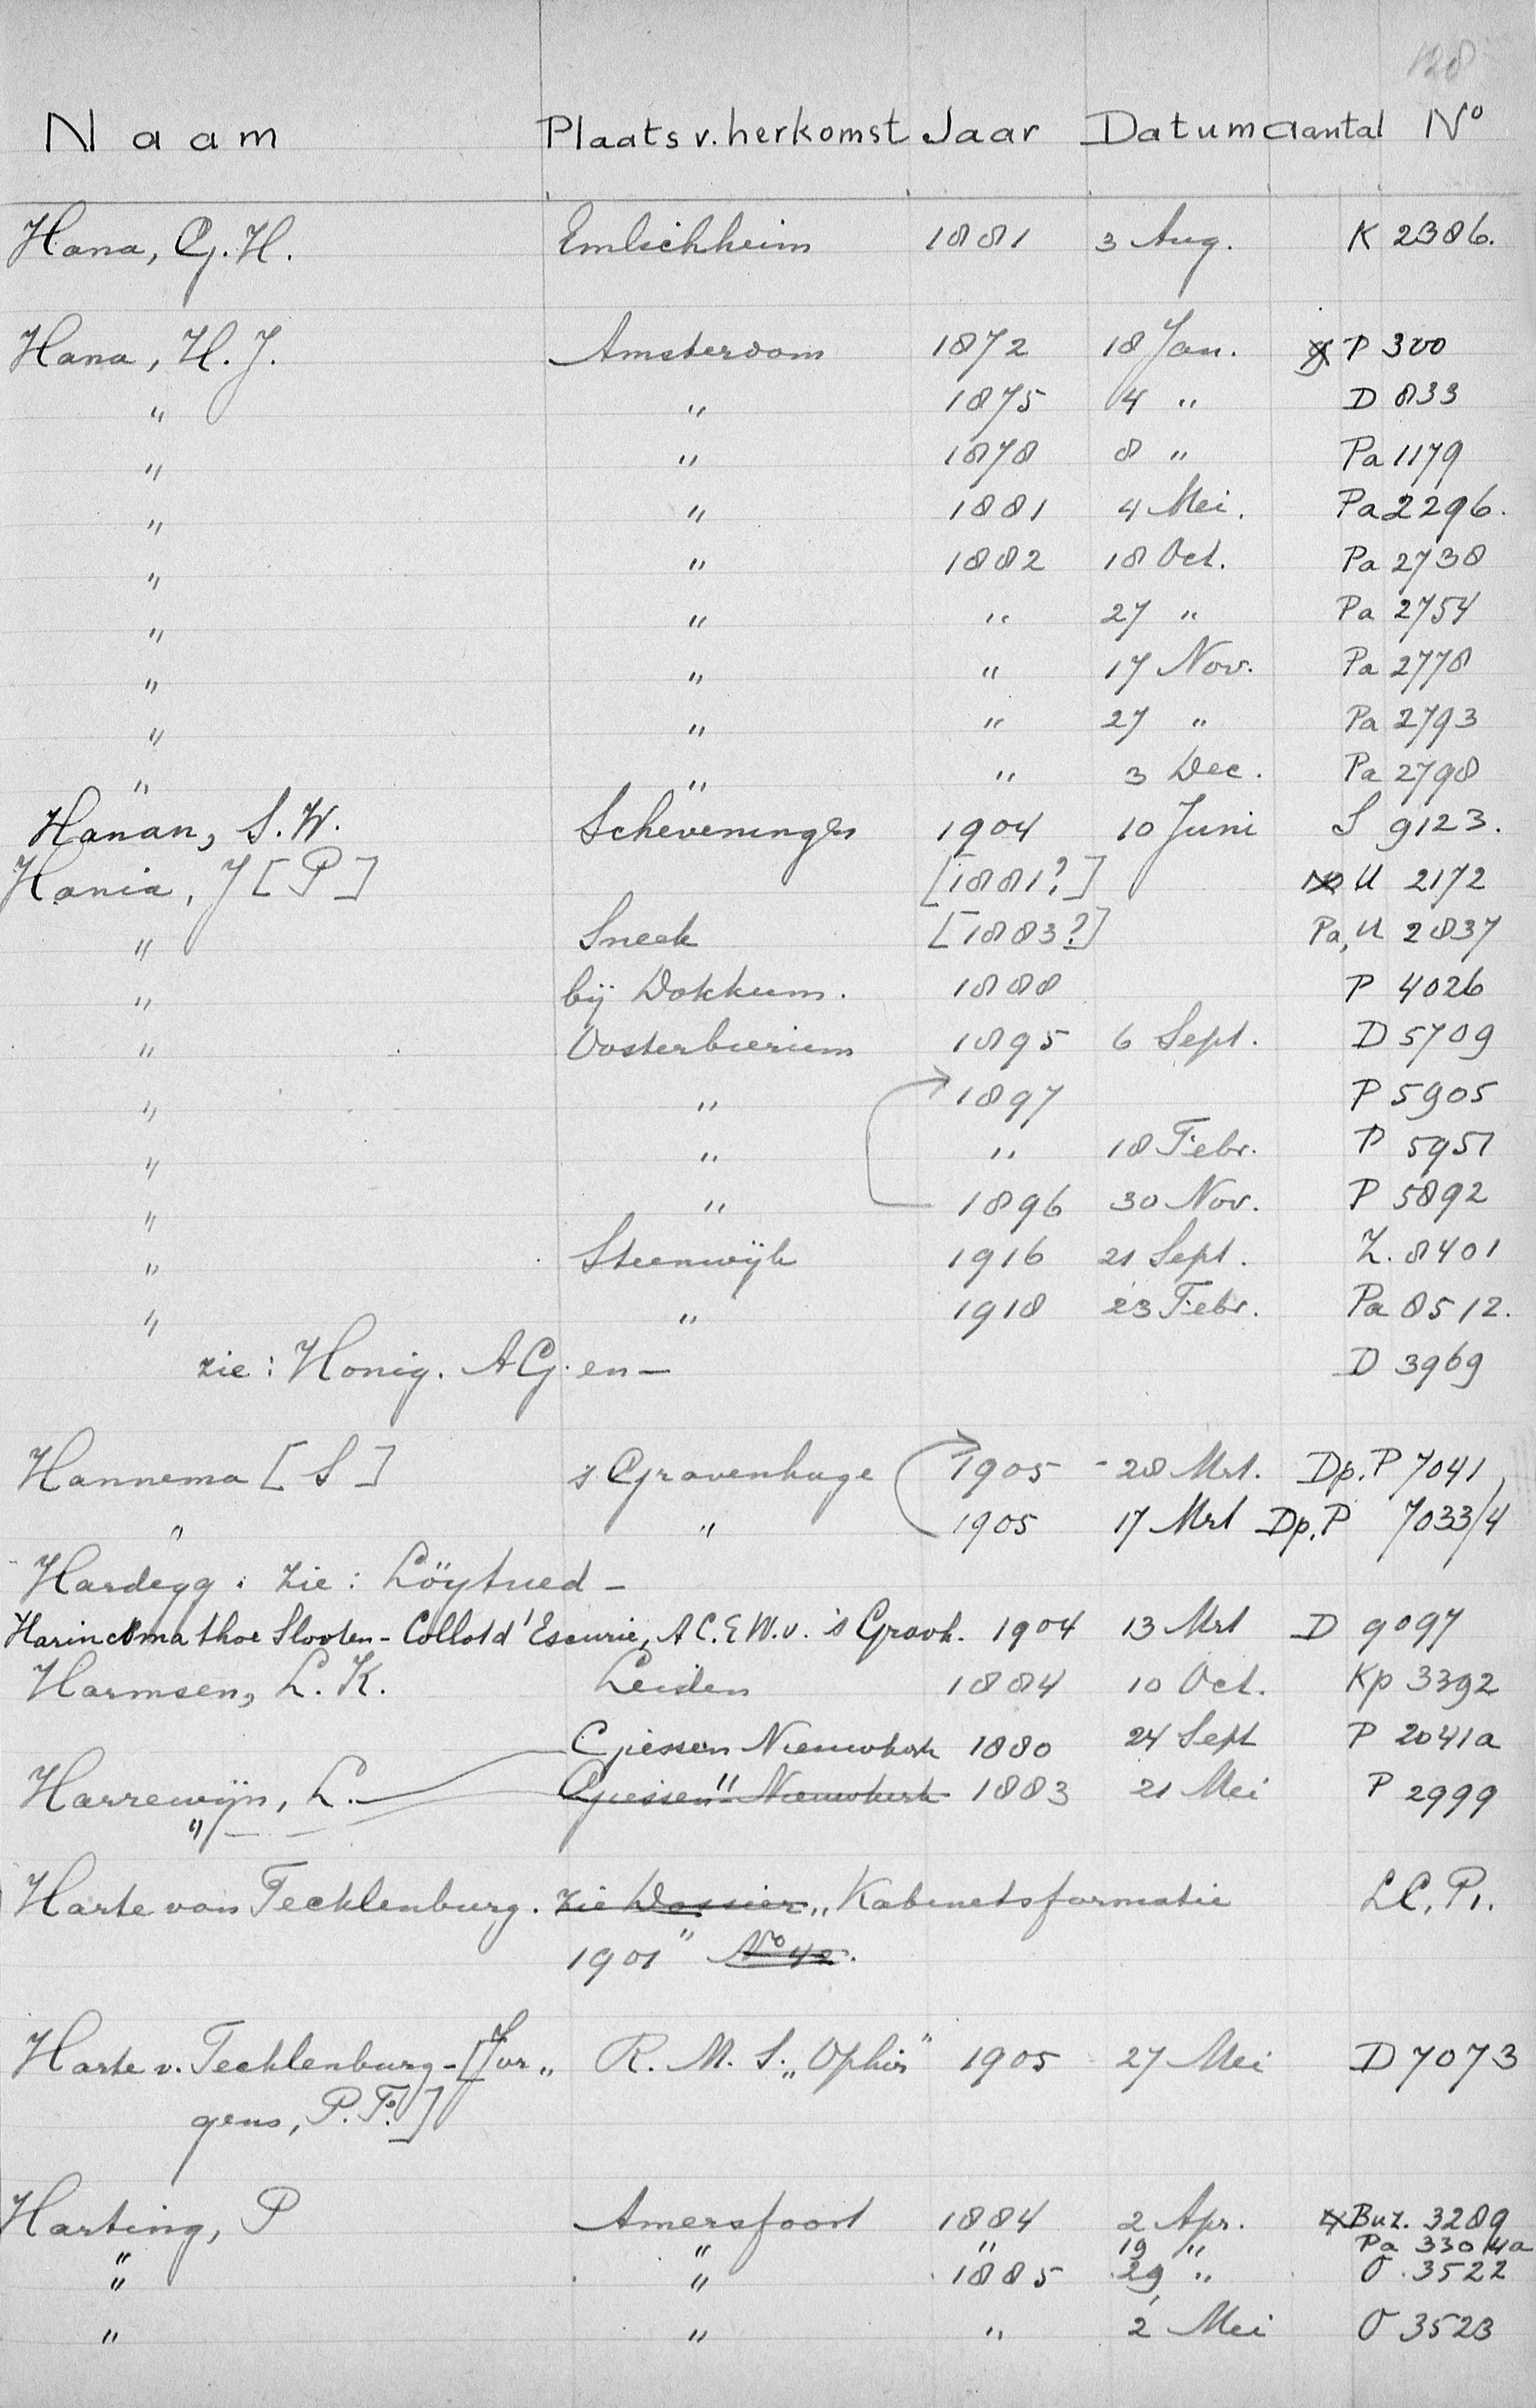 128
Naam Plaats v. herkomst Jaar Datum aantal No
Hana, G. H. Emlichheim 1881 3 Aug. K 2386.
Hana, H. J. Amsterdam 1872 18 Jan. P 300
" " 1875 4 " D 833
" " 1878 8 " Pa 1179
" " 1881 4 Mei. Pa 2296.
" " 1882 18 Oct. Pa 2738
" " " 27 " Pa 2754
" " " 17 Nov. Pa 2778
" " " 27 " Pa 2793
" " " 3 Dec. Pa 2798
Hanan, S. W. Scheveningen 1904 10 Juni S 9123.
Hania, J [P] [1881?] U 2172
" Sneek [1883?] Pa, U 2837
" bij Dokkum. 1888 P 4026
" Oosterbierum 1895 6 Sept. D 5709
" " 1897 P 5905
" " " 18 Febr. P 5951
" " 1896 30 Nov. P 5892
" Steenwijk 1916 21 Sept. Z. 8401
" " 1918 23 Febr. Pa 8512.
zie: Honig. A G. en - D 3969
Hannema [S] s Gravenhage 1905 - 28 Mrt. Dp. P 7041
" " 1905 17 Mrt Dp. P 7033/4
Hardegg. zie: Löytved -
Harinxma thoe Slooten - Collot d'Escurie, A C. E W. v. 's Gravh. 1904 13 Mrt D 9097
Harmsen, L. K. Leiden 1884 10 Oct. Kp 3392
Giessen Nieuwkerk 1880 24 Sept P 2041a
Harrewijn, L. Giessen " Nieuwkerk 1883 21 Mei P 2999
"
Harte van Tecklenburg. zie Dossier „Kabinetsformatie L.C. P1.
1901" No 42.
Harte v. Tecklenburg - [Jur„ R. M. S. „Ophir" 1905 27 Mei D 7073
gens, P. F.]
Harting, P Amersfoort 1884 2 Apr. Buz. 3289
" " 19 " Pa 3304a
" " 1885 29 " O. 3522
" " " 2 Mei O 3523